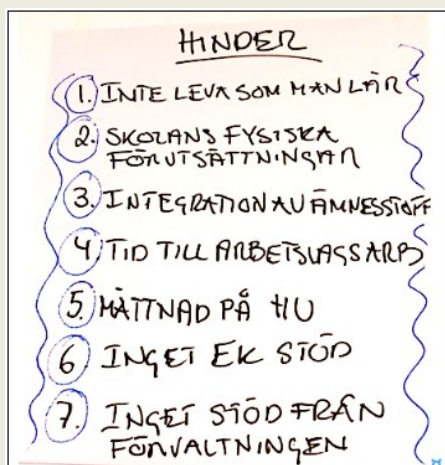 HINDER
1. INTE LEVA SOM MAN LÄR
2. SKOLANS FYSISKA
FÖRUTSÄTTNINGAR
3. INTEGRATION AV ÄMNESSTOFF
4 TID TILL ARBETSLAGSARB
5. MÄTTNAD PÅ HU
6 INGET EK STÖD
7. INGET STÖD FRÅN
FÖRVALTNINGEN